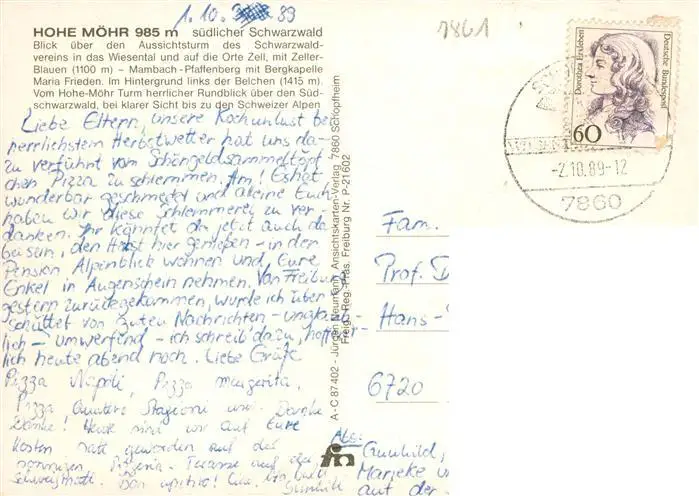 1.10. 89
HOHE MÖHR 985 m südlicher Schwarzwald
Blick über den Aussichtsturm des Schwarzwald-
vereins in das Wiesental und auf die Orte Zell, mit Zeller-
Blauen (1100 m) – Mambach-Pfaffenberg mit Bergkapelle
Maria Frieden. Im Hintergrund links der Belchen (1415 m).
Vom Hohe-Möhr Turm herrlicher Rundblick über den Süd-
schwarzwald, bei klarer Sicht bis zu den Schweizer Alpen
Liebe Eltern, unsere Kochunlust bei
herrlichstem Herbstwetter hat uns da-
zu verführt vom Schöngeldsammeltöpf
chen Pizza zu schlemmen. Es hat
wunderbar geschmeckt und alleine Euch
haben wir diese Schlemmerei zu ver
danken. Ihr könntet ja jetzt auch da
bei sein, den Herbst hier genießen - in der
Pension Alpenblick wohnen und Eure
Enkel in Augenschein nehmen. Von Freiburg
gestern zurückgekommen, wurde ich über
schüttet von guten Nachrichten - unglaub-
lich - umwerfend - ich schreib' dazu, hoffent-
lich heute abend noch. Liebe Grüße
Pizza Napoli, Pizza margerita,
Pizza Quattro Stagioni usw. Danke
Danke! Heute sind wir auf Eure
Kosten satt geworden auf der
sonnigen Pizzeria-Terasse auf der
Bon apetito!
A-C 87402 - Jürgen Neumann Ansichtskarten-Verlag 7860 Schopfheim
Freig. Reg.-Präs. Freiburg Nr. P-21602
7861
Dorothea Erxleben
Deutsche Bundespost
60
-2.10.89-12
7860
Fam.
Prof. D
Hans-
6720
Abs:
Gunhild,
Marieke u
auf der